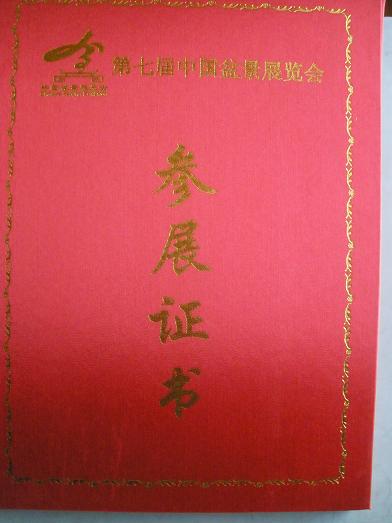 第七届中国盆景展览会
参展证书